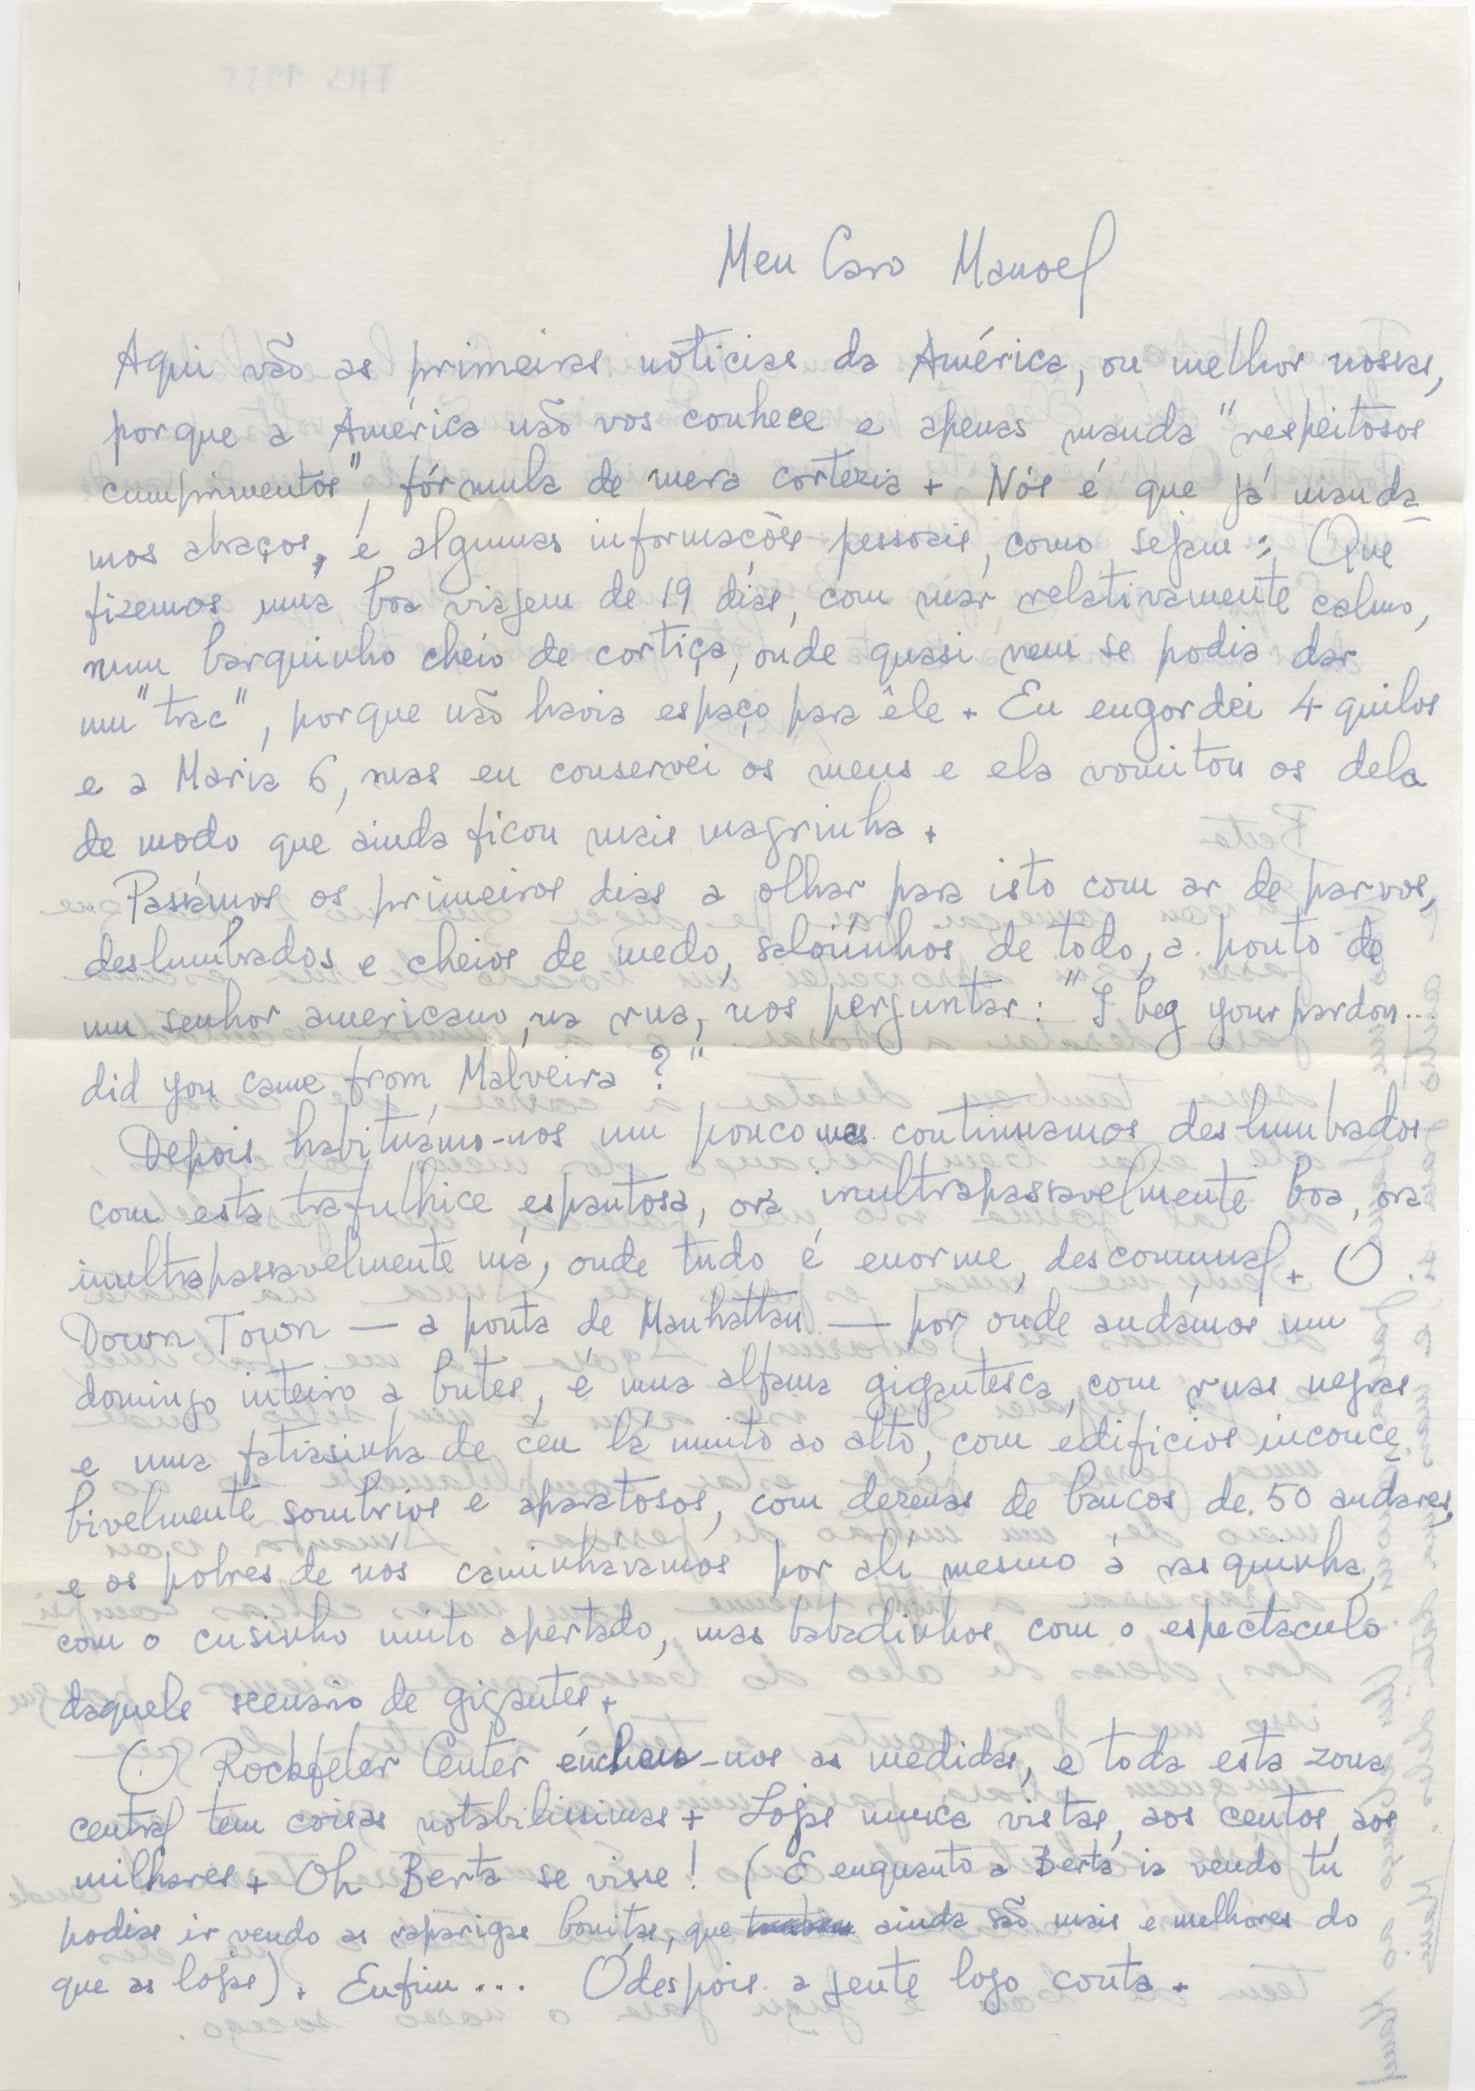 Meu Caro Manoel
Aqui vão as primeiras noticias da América, ou melhor nossas,
porque a América não vos conhece e apenas manda "respeitosos
cumprimentos", fórmula de mera cortezia + Nós é que já manda_
mos abraços, e algumas informações pessoais, como sejam: Que
fizemos uma boa viagem de 19 dias, com mar relativamente calmo,
num barquinho cheio de cortiça, onde quasi nem se podia dar
um "trac", porque não havia espaço para êle + Eu engordei 4 quilos
e a Maria 6, mas eu conservei os meus e ela vomitou os dela
de modo que ainda ficou mais magrinha +
Passámos os primeiros dias a olhar para isto com ar de parvos,
deslumbrados e cheios de medo, saloiínhos de todo, a ponto de
um senhor americano, na rua, nos perguntar: "I beg your pardon...
did you came from Malveira?"
Depois habituámo-nos um pouco mas continuamos deslumbrados
com esta trafulhice espantosa, ora inultrapassavelmente boa, ora
inultrapassavelmente má, onde tudo é enorme, descomunal + O
Down Town — a ponta de Manhattan — por onde andámos um
domingo inteiro a butes, é uma alfama gigantesca, com ruas negras
e uma fatiasinha de céu lá muito ao alto, com edificios inconce_
bivelmente sombrios e aparatosos, com dezenas de bancos de 50 andares,
e os pobres de nós caminhávamos por ali mesmo à rasquinha,
com o cusinho muito apertado, mas babadinhos com o espectaculo
daquele scenário de gigantes +
O Rockfeler Center encheu-nos as medidas, e toda esta zona
central tem coisas notabilissimas + Lojas nunca vistas, aos centos, aos
milhares + Oh Berta se visse! (E enquanto a Berta ia vendo tu
podias ir vendo as raparigas bonitas, que ainda são mais e melhores do
que as lojas) + Enfim... Ódespois a gente logo conta +